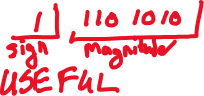 1 110 1010
sign magnitude
USEFUL